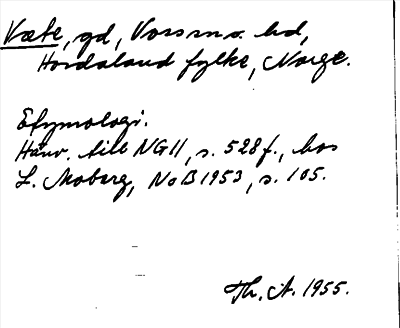 Væte, gd, Voss sn o. hd,
Hordaland fylke, Norge.
Etymologi.
Hänv. till NG 11, s. 528 f., hos
L. Moberg, NoB 1953, s. 105.
Th. A. 1955.